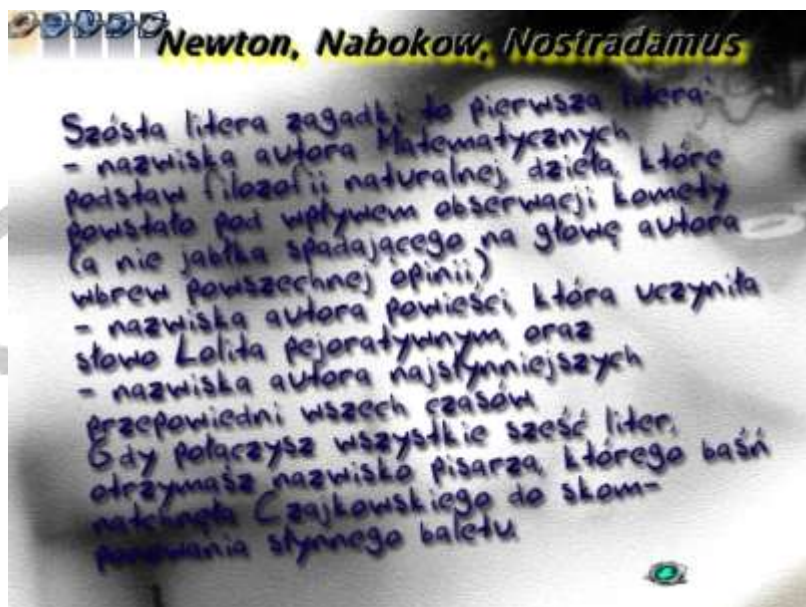 Newton, Nabokow, Nostradamus
Szósta litera zagadki to pierwsza litera:
- nazwiska autora Matematycznych
podstaw filozofii naturalnej, dzieła, które
powstało pod wpływem obserwacji komety
(a nie jabłka spadającego na głowę autora
wbrew powszechnej opinii)
- nazwiska autora powieści, która uczyniła
słowo Lolita pejoratywnym, oraz
- nazwiska autora najsłynniejszych
przepowiedni wszech czasów
Gdy połączysz wszystkie sześć liter,
otrzymasz nazwisko pisarza, którego baśń
natchnęła Czajkowskiego do skom-
ponowania słynnego baletu.